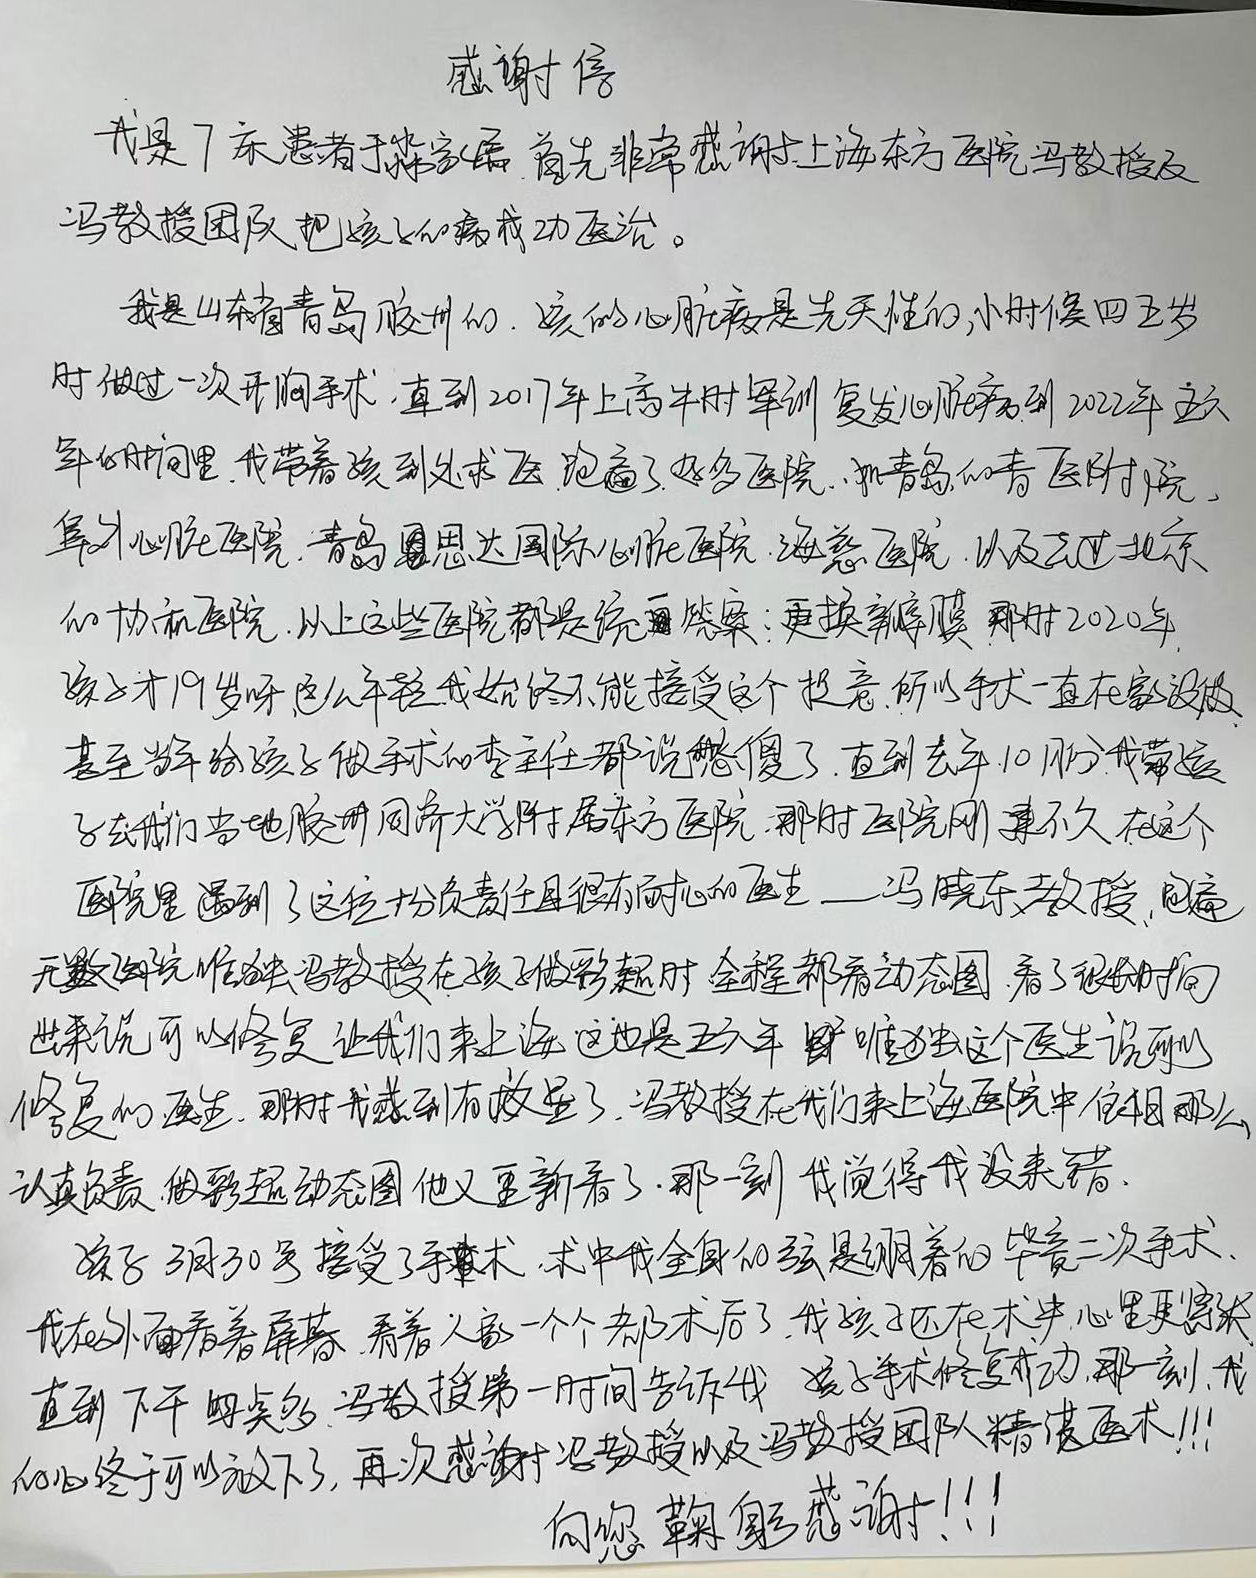 感谢信
我是7床患者于淼家属.首先非常感谢上海东方医院冯教授及
冯教授团队把孩子的病成功医治。
我是山东省青岛胶州的.孩的心脏病是先天性的,小时候四五岁
时做过一次开胸手术.直到2017年上高中时军训复发心脏病到2022年五六
年的时间里.我带着孩到处求医.跑遍了好多医院..就青岛的青医附院、
阜外心脏医院.青岛思达国际心脏医院.海慈医院.以及去过北京
的协和医院.以上这些医院都是统一答案:更换瓣膜 那时2020年
孩子才19岁呀,这么年轻我始终不能接受这个提意.所以手术一直在家没做
甚至当年给孩子做手术的李主任都说憨傻了.直到去年.10月份我带孩
子去我们当地胶州同济大学附属东方医院.那时医院刚来不久 在这个
医院里遇到了这位十分负责任且很有耐心的医生——冯晓东教授,跑遍
无数医院唯独冯教授在孩子做彩超时 全程都看动态图.看了很长时间
出来说可以修复 让我们来上海 这也是五六年 唯独这个医生说可以
修复的医生.那时我感到有救星了.冯教授在我们来上海医院中依旧那么
认真负责.做彩超动态图他又重新看了.那一刻 我觉得我没来错.
孩子3月30号接受了手术.术中我全身的弦是绷着的 毕竟二次手术.
我在外面看着屏幕.看着人家一个个都术后了.我孩子还在术中,心里更紧张
直到下午四点多.冯教授第一时间告诉我 孩子手术修复成功.那一刻.我
的心终于可以放下了,再次感谢冯教授以及冯教授团队精湛医术!!!
向您鞠躬感谢!!!